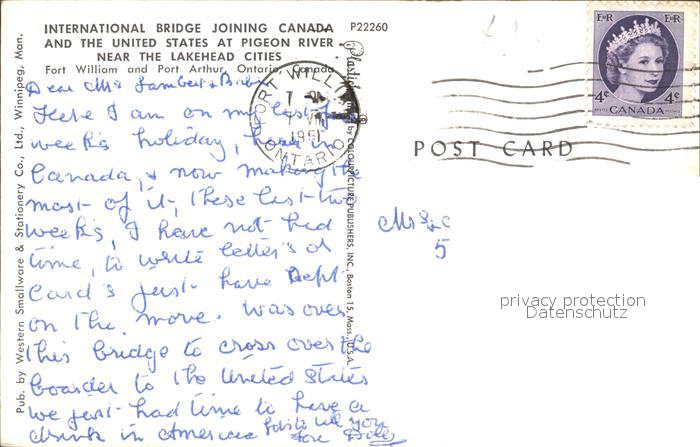 INTERNATIONAL BRIDGE JOINING CANADA
AND THE UNITED STATES AT PIGEON RIVER
NEAR THE LAKEHEAD CITIES
Fort William and Port Arthur, Ontario, Canada
P22260
Pub. by Western Smallware & Stationery Co., Ltd., Winnipeg, Man.
Dear Mrs Lambert &
Here I am on my last few
weeks holiday, here in
Canada, & now making the
most of it, these last two
weeks, I have not had
time, to write letter's or
Card's just have kept
on the move. was over
this bridge to cross over the
boarder to the United States
we just had time to have a
drink in America to tell you
FORT WILLIAM
1961
ONTARIO
by COLOURPICTURE PUBLISHERS, INC., Boston 15, Mass., U.S.A.
E R E R
4¢ 4¢
CANADA
POST CARD
Mrs
5
privacy protection
Datenschutz